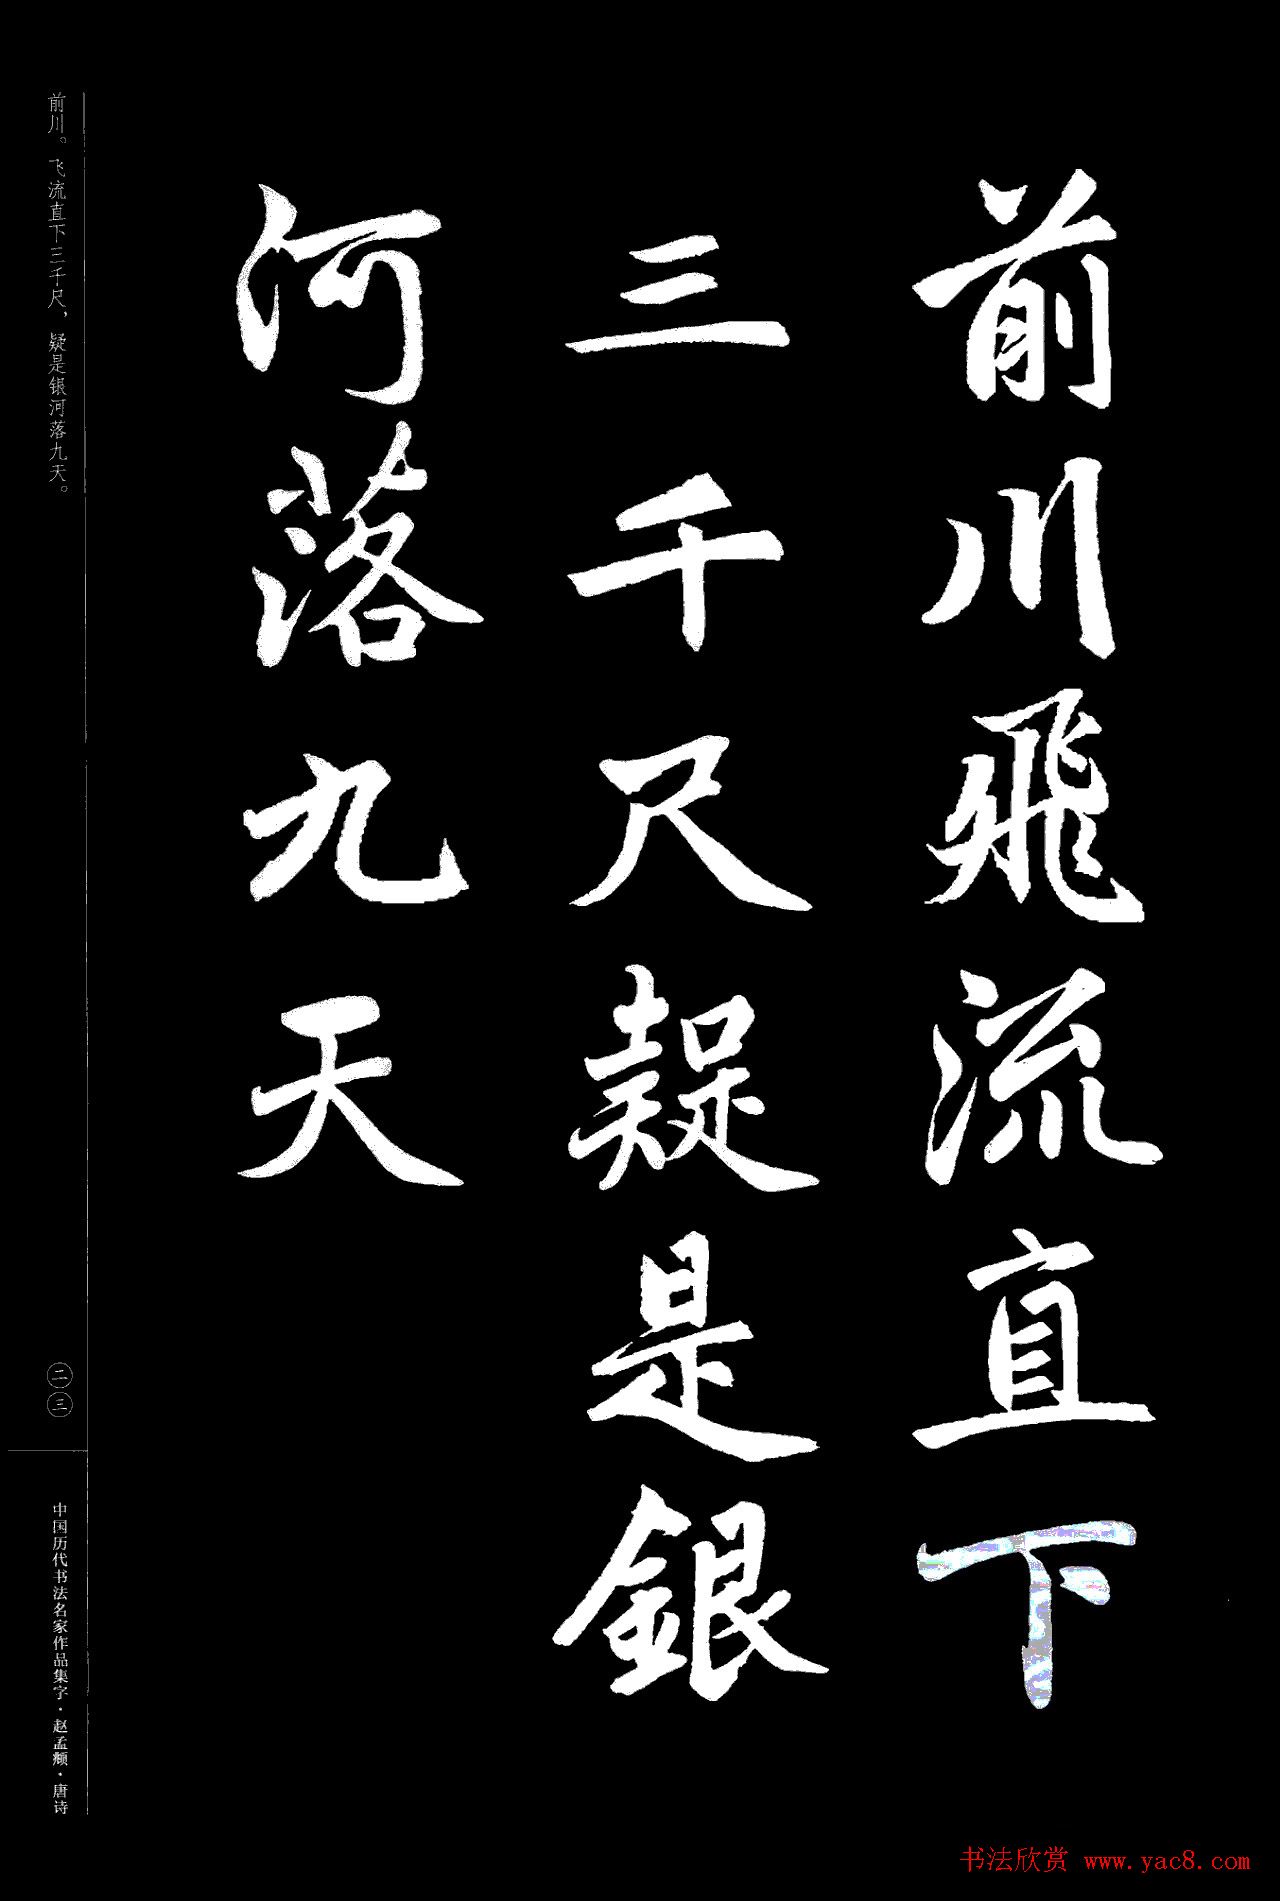 前川飛流直下
三千尺疑是銀
河落九天
前川。飞流直下三千尺，疑是银河落九天。
二三
中国历代书法名家作品集字·赵孟頫·唐诗
书法欣赏 www.yac8.com